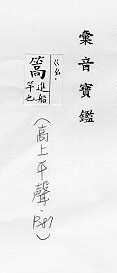 彙音寶鑑
ㄍㄠ
篙
進船
竿也
(高上平聲. P.87)